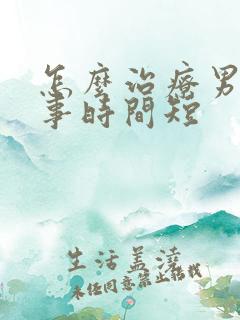 怎麼治療男
事時間短
生活盖湾
未经同意禁止转载